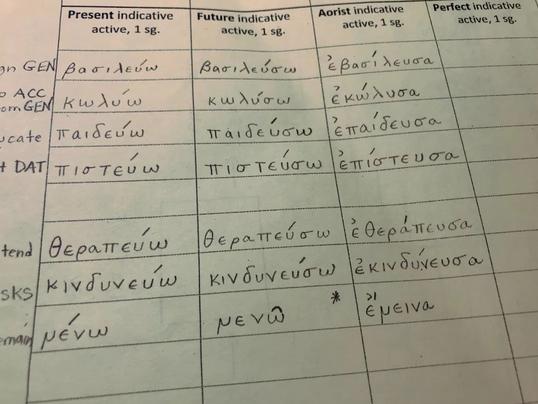 Present indicative active, 1 sg. Future indicative active, 1 sg. Aorist indicative active, 1 sg. Perfect indicative active, 1 sg.
gn GEN βασιλεύω βασιλεύσω ἐβασίλευσα
o ACC
om GEN κωλύω κωλύσω ἐκώλυσα
ucate παιδεύω παιδεύσω ἐπαίδευσα
+ DAT πιστεύω πιστεύσω ἐπίστευσα
tend θεραπεύω θεραπεύσω ἐθεράπευσα
sks κινδυνεύω κινδυνεύσω ἐκινδύνευσα
emain μένω μενῶ * ἔμεινα